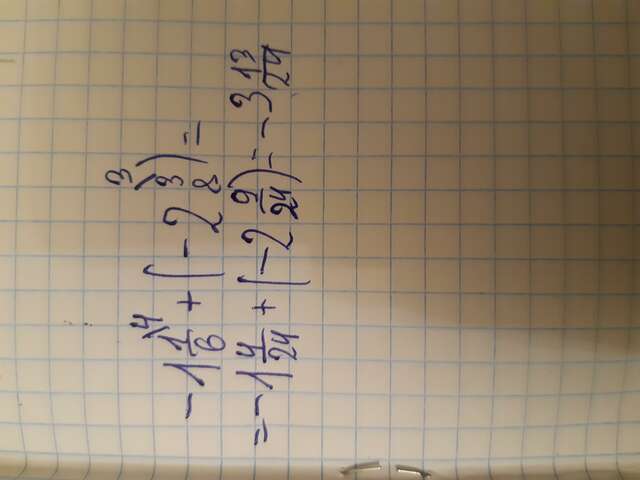 -1 1/6 \4 + (-2 3/8 \3) =
= -1 4/24 + (-2 9/24) = -3 13/24